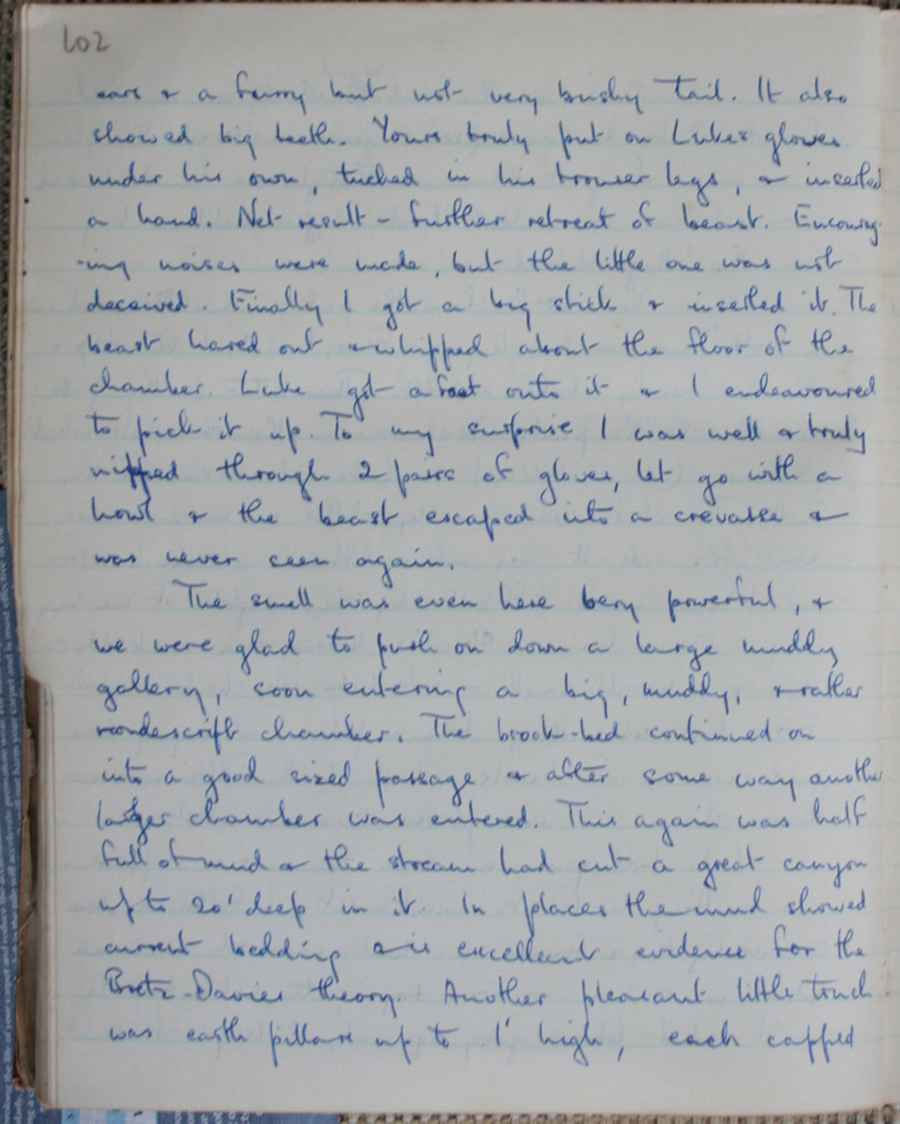 102
ears & a furry but not very bushy tail. It also
showed big teeth. Yours truly put on Lukes gloves
under his own, tucked in his trouser legs, & inserted
a hand. Net result - further retreat of beast. Encourag-
-ing noises were made, but the little one was not
deceived. Finally I got a big stick & inserted it. The
beast hared out & whipped about the floor of the
chamber. Luke got a foot onto it & I endeavoured
to pick it up. To my surprise I was well & truly
nipped through 2 pairs of gloves, let go with a
howl & the beast escaped into a crevasse &
was never seen again.
The smell was even here very powerful, &
we were glad to push on down a large muddy
gallery, soon entering a big, muddy, & rather
nondescript chamber. The brook-bed continued on
into a good sized passage & after some way another
larger chamber was entered. This again was half
full of mud & the stream had cut a great canyon
up to 20' deep in it. In places the mud showed
current bedding & is excellent evidence for the
Bretz-Davies theory. Another pleasant little touch
was earth pillars up to 1' high, each capped